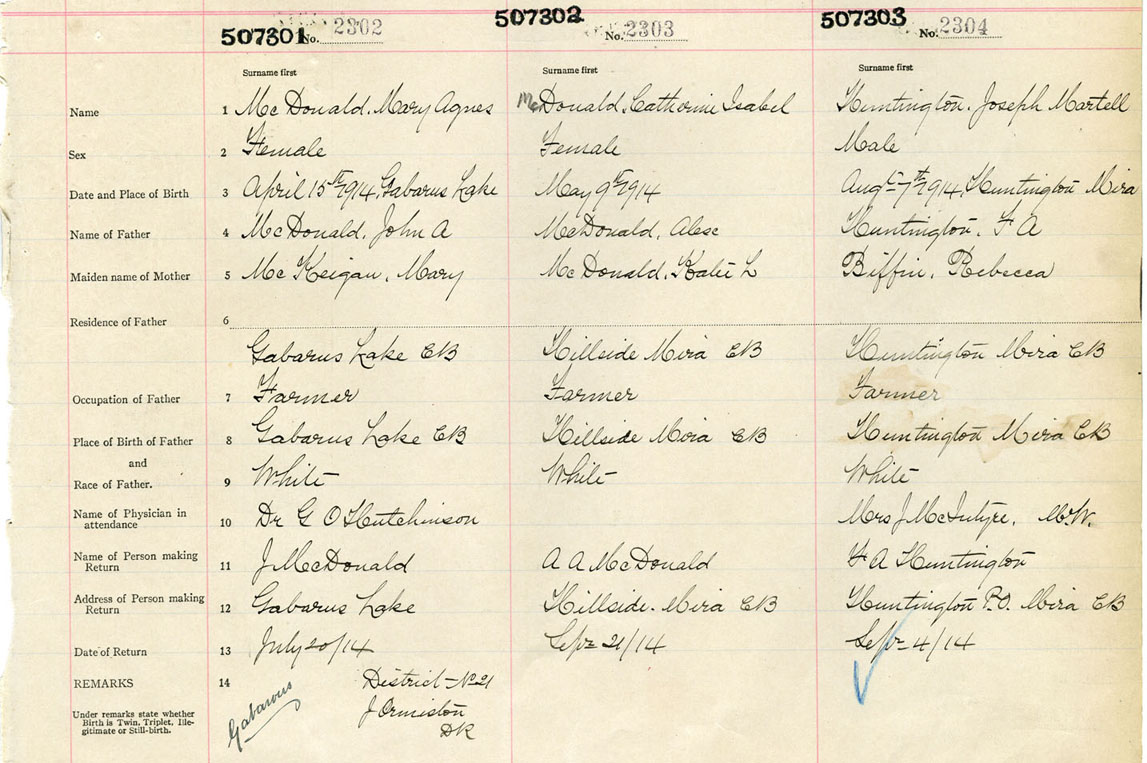 507301 No. 2302 507302 No. 2303 507303 No. 2304
Surname first Surname first Surname first
Name 1 Mc Donald, Mary Agnes McDonald, Catherine Isabel Huntington, Joseph Martell
Sex 2 Female Female Male
Date and Place of Birth 3 April 15th 1914, Gabarus Lake May 9th 1914 Augt 7th 1914, Huntington Mira
Name of Father 4 McDonald, John A McDonald, Alex Huntington, F A
Maiden name of Mother 5 Mc Keigan, Mary McDonald, Katie L Biffin, Rebecca
Residence of Father 6
Gabarus Lake CB Hillside Mira CB Huntington Mira CB
Occupation of Father 7 Farmer Farmer Farmer
Place of Birth of Father 8 Gabarus Lake CB Hillside Mira CB Huntington Mira CB
and
Race of Father. 9 White White White
Name of Physician in attendance 10 Dr G O Hutchinson Mrs J McIntyre, M.W.
Name of Person making Return 11 J McDonald A A McDonald F A Huntington
Address of Person making Return 12 Gabarus Lake Hillside. Mira CB Huntington P.O. Mira CB
Date of Return 13 July 20/14 Sept 21/14 Sept 4/14
REMARKS 14 District No 21
Under remarks state whether Birth is Twin, Triplet, Ille-gitimate or Still-birth. Gabarous J Ormiston
DR